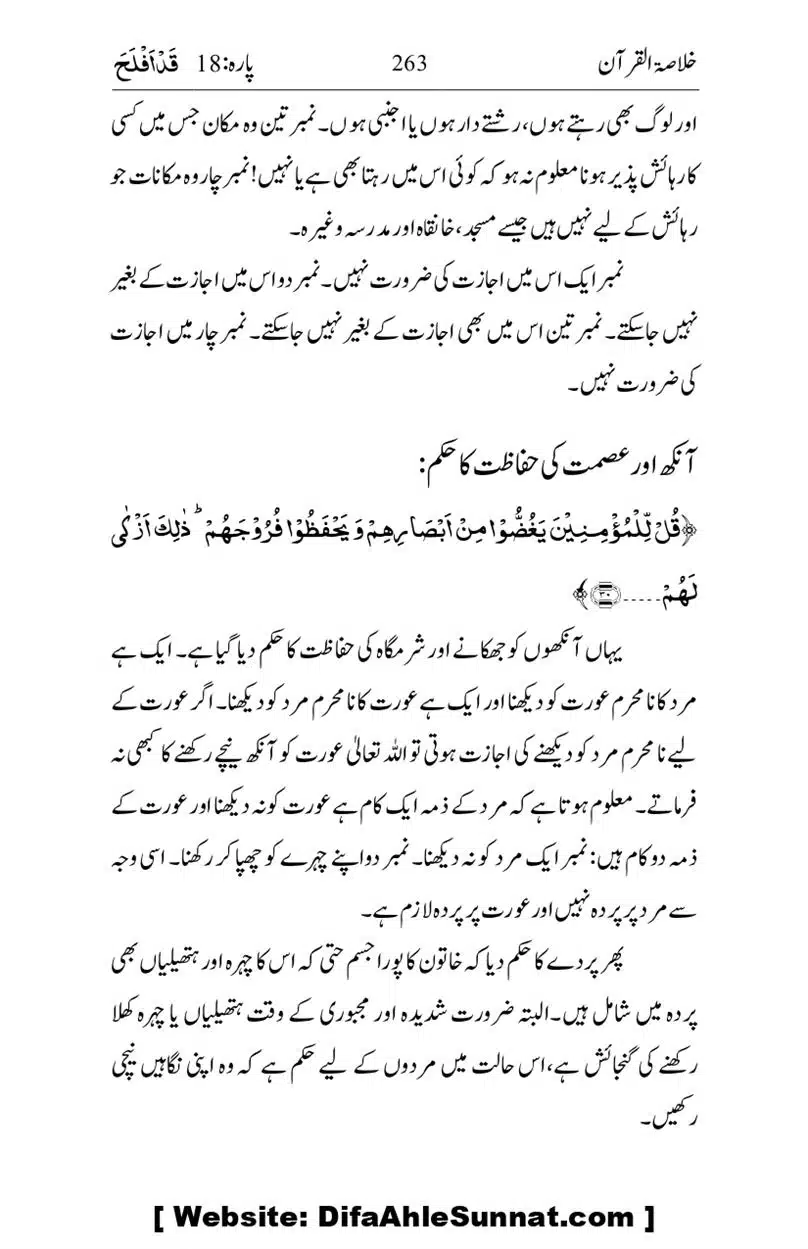 خلاصۃ القرآن 263 پارہ:18 قَدْ اَفْلَحَ
اور لوگ بھی رہتے ہوں، رشتے دار ہوں یا اجنبی ہوں۔ نمبر تین وہ مکان جس میں کسی
کا رہائش پذیر ہونا معلوم نہ ہو کہ کوئی اس میں رہتا بھی ہے یا نہیں! نمبر چار وہ مکانات جو
رہائش کے لیے نہیں ہیں جیسے مسجد، خانقاہ اور مدرسہ وغیرہ۔
نمبر ایک اس میں اجازت کی ضرورت نہیں۔ نمبر دو اس میں اجازت کے بغیر
نہیں جاسکتے۔ نمبر تین اس میں بھی اجازت کے بغیر نہیں جاسکتے۔ نمبر چار میں اجازت
کی ضرورت نہیں۔
آنکھ اور عصمت کی حفاظت کا حکم:
﴿قُلْ لِّلْمُؤْمِنِیْنَ یَغُضُّوْا مِنْ اَبْصَارِہِمْ وَ یَحْفَظُوْا فُرُوْجَہُمْ ؕ ذٰلِکَ اَزْکٰی
لَہُمْ.....﴿۳۰﴾﴾
یہاں آنکھوں کو جھکانے اور شرمگاہ کی حفاظت کا حکم دیا گیا ہے۔ ایک ہے
مرد کا نامحرم عورت کو دیکھنا اور ایک ہے عورت کا نامحرم مرد کو دیکھنا۔ اگر عورت کے
لیے نامحرم مرد کو دیکھنے کی اجازت ہوتی تو اللہ تعالیٰ عورت کو آنکھ نیچے رکھنے کا کبھی نہ
فرماتے۔ معلوم ہوتا ہے کہ مرد کے ذمہ ایک کام ہے عورت کو نہ دیکھنا اور عورت کے
ذمہ دو کام ہیں: نمبر ایک مرد کو نہ دیکھنا۔ نمبر دو اپنے چہرے کو چھپا کر رکھنا۔ اسی وجہ
سے مرد پر پردہ نہیں اور عورت پر پردہ لازم ہے۔
پھر پردے کا حکم دیا کہ خاتون کا پورا جسم حتی کہ اس کا چہرہ اور ہتھیلیاں بھی
پردہ میں شامل ہیں۔ البتہ ضرورت شدیدہ اور مجبوری کے وقت ہتھیلیاں یا چہرہ کھلا
رکھنے کی گنجائش ہے، اس حالت میں مردوں کے لیے حکم ہے کہ وہ اپنی نگاہیں نیچی
رکھیں۔
[ Website: DifaAhleSunnat.com ]